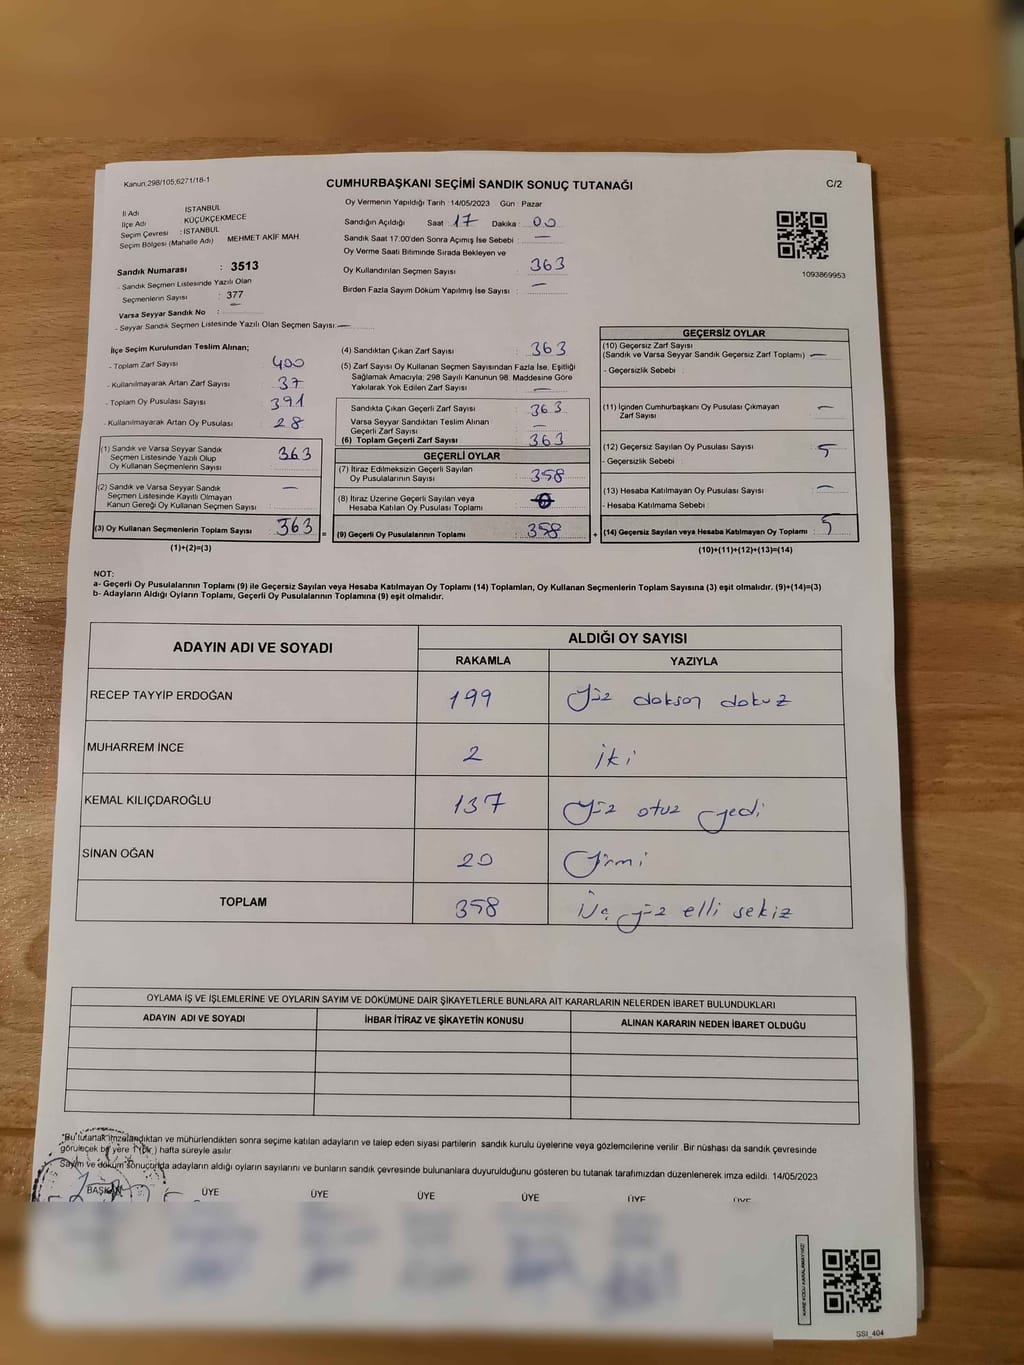 Kanun:298/105;6271/18-1
CUMHURBAŞKANI SEÇİMİ SANDIK SONUÇ TUTANAĞI
C/2
İl Adı İSTANBUL
İlçe Adı KÜÇÜKÇEKMECE
Seçim Çevresi : İSTANBUL
Seçim Bölgesi (Mahalle Adı) MEHMET AKİF MAH.
Sandık Numarası : 3513
- Sandık Seçmen Listesinde Yazılı Olan
Seçmenlerin Sayısı : 377
Varsa Seyyar Sandık No : —
- Seyyar Sandık Seçmen Listesinde Yazılı Olan Seçmen Sayısı: —
Oy Vermenin Yapıldığı Tarih :14/05/2023 Gün : Pazar
Sandığın Açıldığı Saat 17 Dakika : 00
Sandık Saat 17:00'den Sonra Açımış İse Sebebi : —
Oy Verme Saati Bitiminde Sırada Bekleyen ve
Oy Kullandırılan Seçmen Sayısı : 363
Birden Fazla Sayım Döküm Yapılmış İse Sayısı : —
1093869953
İlçe Seçim Kurulundan Teslim Alınan;
- Toplam Zarf Sayısı : 400
- Kullanılmayarak Artan Zarf Sayısı : 37
- Toplam Oy Pusulası Sayısı : 391
- Kullanılmayarak Artan Oy Pusulası : 28
(1) Sandık ve Varsa Seyyar Sandık
Seçmen Listesinde Yazılı Olup
Oy Kullanan Seçmenlerin Sayısı : 363
(2) Sandık ve Varsa Seyyar Sandık
Seçmen Listesinde Kayıtlı Olmayan
Kanun Gereği Oy Kullanan Seçmen Sayısı : —
(3) Oy Kullanan Seçmenlerin Toplam Sayısı 363
(1)+(2)=(3)
(4) Sandıktan Çıkan Zarf Sayısı : 363
(5) Zarf Sayısı Oy Kullanan Seçmen Sayısından Fazla İse, Eşitliği
Sağlamak Amacıyla; 298 Sayılı Kanunun 98. Maddesine Göre
Yakılarak Yok Edilen Zarf Sayısı : —
Sandıkta Çıkan Geçerli Zarf Sayısı : 363
Varsa Seyyar Sandıktan Teslim Alınan
Geçerli Zarf Sayısı : —
(6) Toplam Geçerli Zarf Sayısı : 363
GEÇERLİ OYLAR
(7) İtiraz Edilmeksizin Geçerli Sayılan
Oy Pusulalarının Sayısı : 358
(8) İtiraz Üzerine Geçerli Sayılan veya
Hesaba Katılan Oy Pusulası Toplamı :
= (9) Geçerli Oy Pusulalarının Toplamı : 358
GEÇERSİZ OYLAR
(10) Geçersiz Zarf Sayısı
(Sandık ve Varsa Seyyar Sandık Geçersiz Zarf Toplamı) —
- Geçersizlik Sebebi :
(11) İçinden Cumhurbaşkanı Oy Pusulası Çıkmayan
Zarf Sayısı : —
(12) Geçersiz Sayılan Oy Pusulası Sayısı : 5
- Geçersizlik Sebebi :
(13) Hesaba Katılmayan Oy Pusulası Sayısı : —
- Hesaba Katılmama Sebebi :
+ (14) Geçersiz Sayılan veya Hesaba Katılmayan Oy Toplamı : 5
(10)+(11)+(12)+(13)=(14)
NOT:
a- Geçerli Oy Pusulalarının Toplamı (9) ile Geçersiz Sayılan veya Hesaba Katılmayan Oy Toplamı (14) Toplamları, Oy Kullanan Seçmenlerin Toplam Sayısına (3) eşit olmalıdır. (9)+(14)=(3)
b- Adayların Aldığı Oyların Toplamı, Geçerli Oy Pusulalarının Toplamına (9) eşit olmalıdır.
ADAYIN ADI VE SOYADI ALDIĞI OY SAYISI
RAKAMLA YAZIYLA
RECEP TAYYİP ERDOĞAN 199 Yüz doksan dokuz
MUHARREM İNCE 2 iki
KEMAL KILIÇDAROĞLU 137 Yüz otuz yedi
SİNAN OĞAN 20 Yirmi
TOPLAM 358 Üç yüz elli sekiz
OYLAMA İŞ VE İŞLEMLERİNE VE OYLARIN SAYIM VE DÖKÜMÜNE DAİR ŞİKAYETLERLE BUNLARA AİT KARARLARIN NELERDEN İBARET BULUNDUKLARI
ADAYIN ADI VE SOYADI İHBAR İTİRAZ VE ŞİKAYETİN KONUSU ALINAN KARARIN NEDEN İBARET OLDUĞU
"Bu tutanak imzalandıktan ve mühürlendikten sonra seçime katılan adayların ve talep eden siyasi partilerin sandık kurulu üyelerine veya gözlemcilerine verilir. Bir nüshası da sandık çevresinde
görülecek bir yere 1 (bir) hafta süreyle asılır.
Sayım ve döküm sonucunda adayların aldığı oyların sayılarını ve bunların sandık çevresinde bulunanlara duyurulduğunu gösteren bu tutanak tarafımızdan düzenlenerek imza edildi. 14/05/2023
BAŞKAN ÜYE ÜYE ÜYE ÜYE ÜYE ÜYE
SSI_404